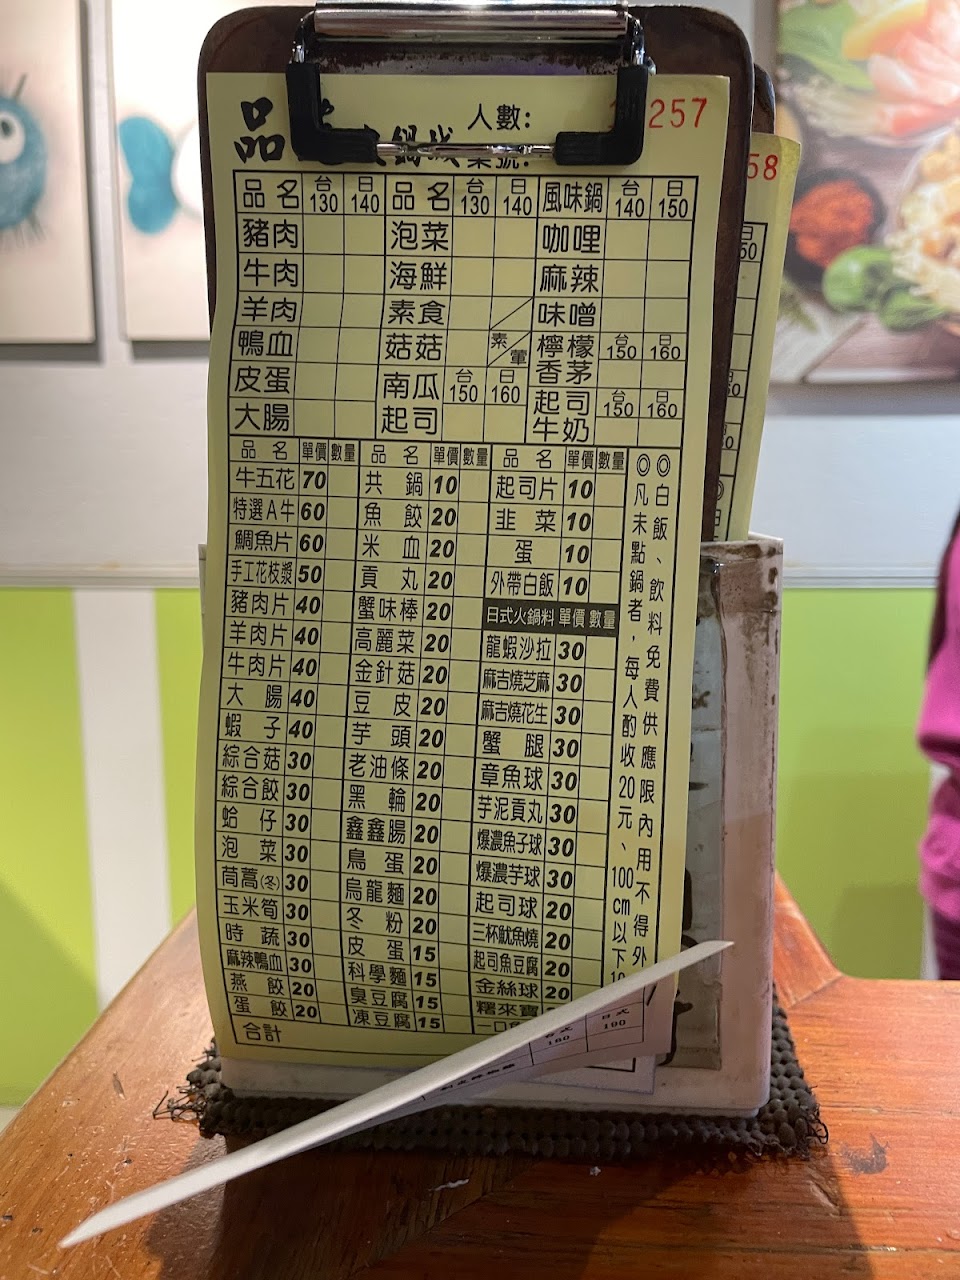 品 火鍋城 人數: 257
桌號: 58
品名 台130 日140 品名 台130 日140 風味鍋 台140 日150
豬肉 泡菜 咖哩
牛肉 海鮮 麻辣
羊肉 素食 味噌
鴨血 菇菇 素 葷 檸檬香茅 台150 日160
皮蛋 南瓜起司 台150 日160 起司牛奶 台150 日160
大腸
品名 單價 數量 品名 單價 數量 品名 單價 數量
牛五花 70 共鍋 10 起司片 10
特選A牛 60 魚餃 20 韭菜 10
鯛魚片 60 米血 20 蛋 10
手工花枝漿 50 貢丸 20 外帶白飯 10
豬肉片 40 蟹味棒 20 日式火鍋料 單價 數量
羊肉片 40 高麗菜 20 龍蝦沙拉 30
牛肉片 40 金針菇 20 麻吉燒芝麻 30
大腸 40 豆皮 20 麻吉燒花生 30
蝦子 40 芋頭 20 蟹腿 30
綜合菇 30 老油條 20 章魚球 30
綜合餃 30 黑輪 20 芋泥貢丸 30
蛤仔 30 鑫鑫腸 20 爆濃魚子球 30
泡菜 30 鳥蛋 20 爆濃芋球 30
茼蒿(冬) 30 烏龍麵 20 起司球 20
玉米筍 30 冬粉 20 三杯魷魚燒 20
時蔬 30 皮蛋 15 起司魚豆腐 20
麻辣鴨血 30 科學麵 15 金絲球 20
燕餃 20 臭豆腐 15 糬來寶
蛋餃 20 凍豆腐 15 一口
合計
◎白飯、飲料免費供應限內用不得外
◎凡未點鍋者，每人酌收20元、100cm以下
台式 160 日式 190